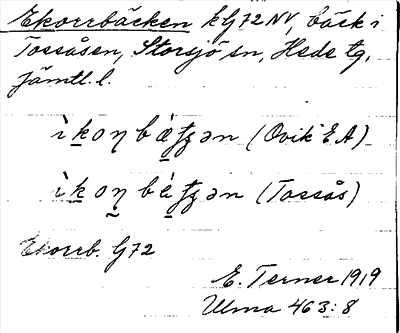 Ekorrbäcken k G72 NV, bäck i
Tossåsen, Storsjö sn, Hede tg,
Jämtl. l.
ìkoŋbáʈʂən (Ovik EA)
ìkoŋbéʈʂən (Tossås)
Ekorrb. G72
E. Terner 1919
Ulma 463:8